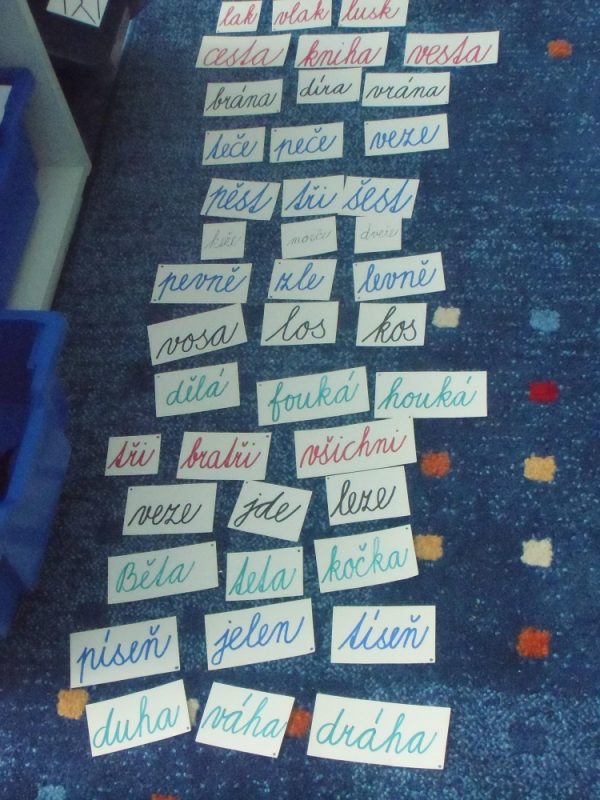 lak vlak lusk
cesta kniha vesta
brána díra vrána
teče peče veze
pěst tři šest
keře moře dveře
pevně zle levně
vosa los kos
dělá fouká houká
tři bratři všichni
veze jde leze
Běta teta kočka
píseň jelen tíseň
duha váha dráha